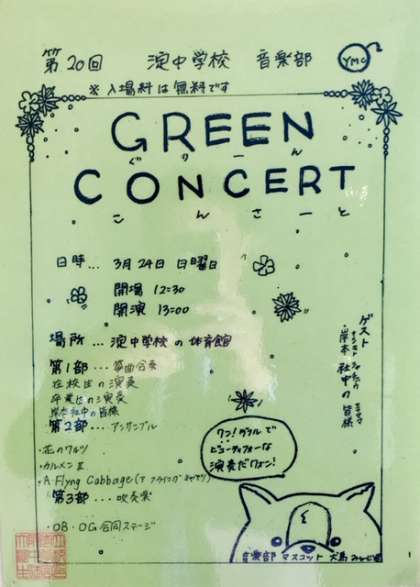 第20回 淀中学校 音楽部
YMC
※入場料は無料です
GREEN
ぐりーん
CONCERT
こんさーと
日時… 3月24日 日曜日
開場 12:30
開演 13:00
場所… 淀中学校の体育館
ゲスト
岸本社中の皆様
第1部… 箏曲合奏
在校生の演奏
卒業生の演奏
岸本社中の皆様
第2部… アンサンブル
・花のワルツ
・カルメンⅡ
・A Flyng Cabbage(ア フライング キャベツ)
第3部… 吹奏楽
・OB・OG合同ステージ
ワン!ダフルで
ビューティフォーな
演奏だワォン!
音楽部 マスコット 犬島